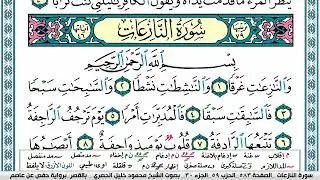 ينظر المرء ما قدمت يداه ويقول الكافر يليتني كنت تربا
سورة النازعات
بسم الله الرحمن الرحيم
والنزعت غرقا ١ والنشطت نشطا ٢ والسبحت سبحا
٣ فالسبقت سبقا ٤ فالمدبرت أمرا ٥ يوم ترجف الراجفة
٦ تتبعها الرادفة ٧ قلوب يومئذ واجفة ٨ أبصرها
سورة النازعات الصفحة ٥٨٣ الحزب ٥٩ الجزء ٣٠ بصوت الشيخ محمود خليل الحصري بالقصر برواية حفص عن عاصم